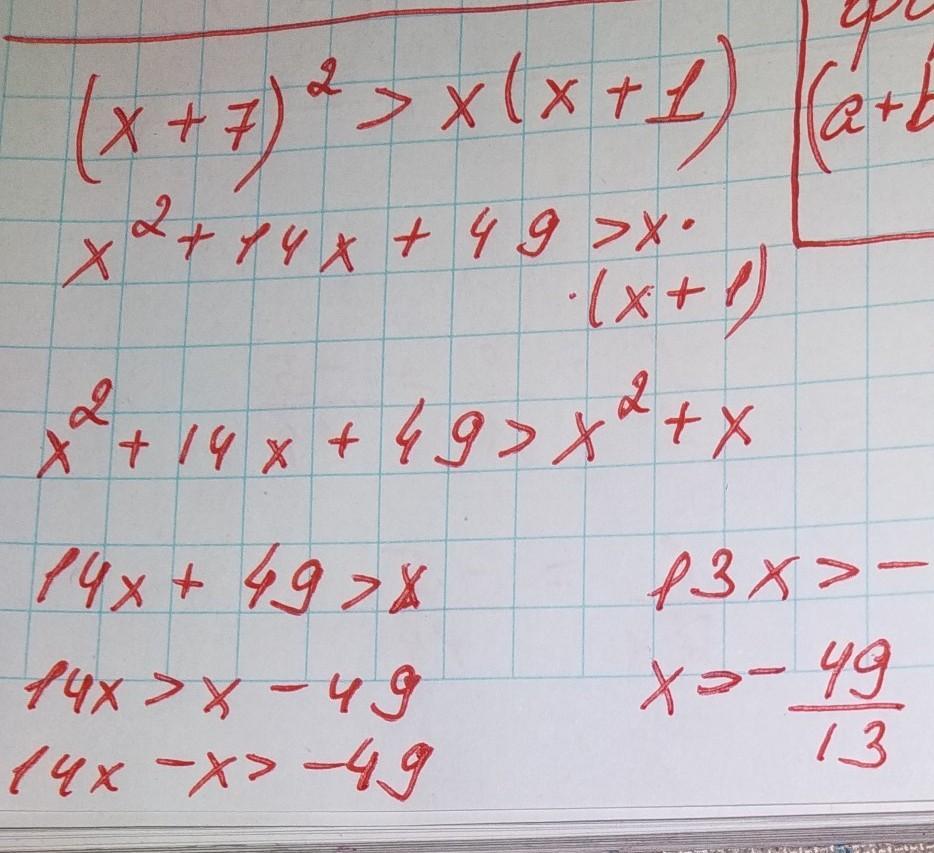 (x + 7)² > x(x + 1)
x² + 14x + 49 > x ·
· (x + 1)
x² + 14x + 49 > x² + x
14x + 49 > x
14x > x - 49
14x - x > -49
13x > -
x > - 49/13
(a + b